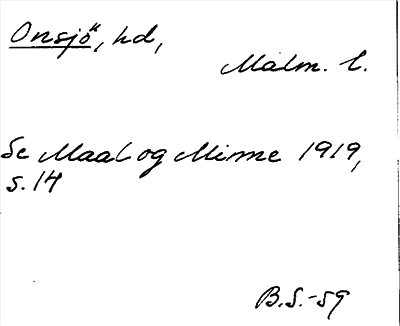 Onsjö, hd,
Malm. l.
Se Maal og Minne 1919,
s. 14
B.S.-59